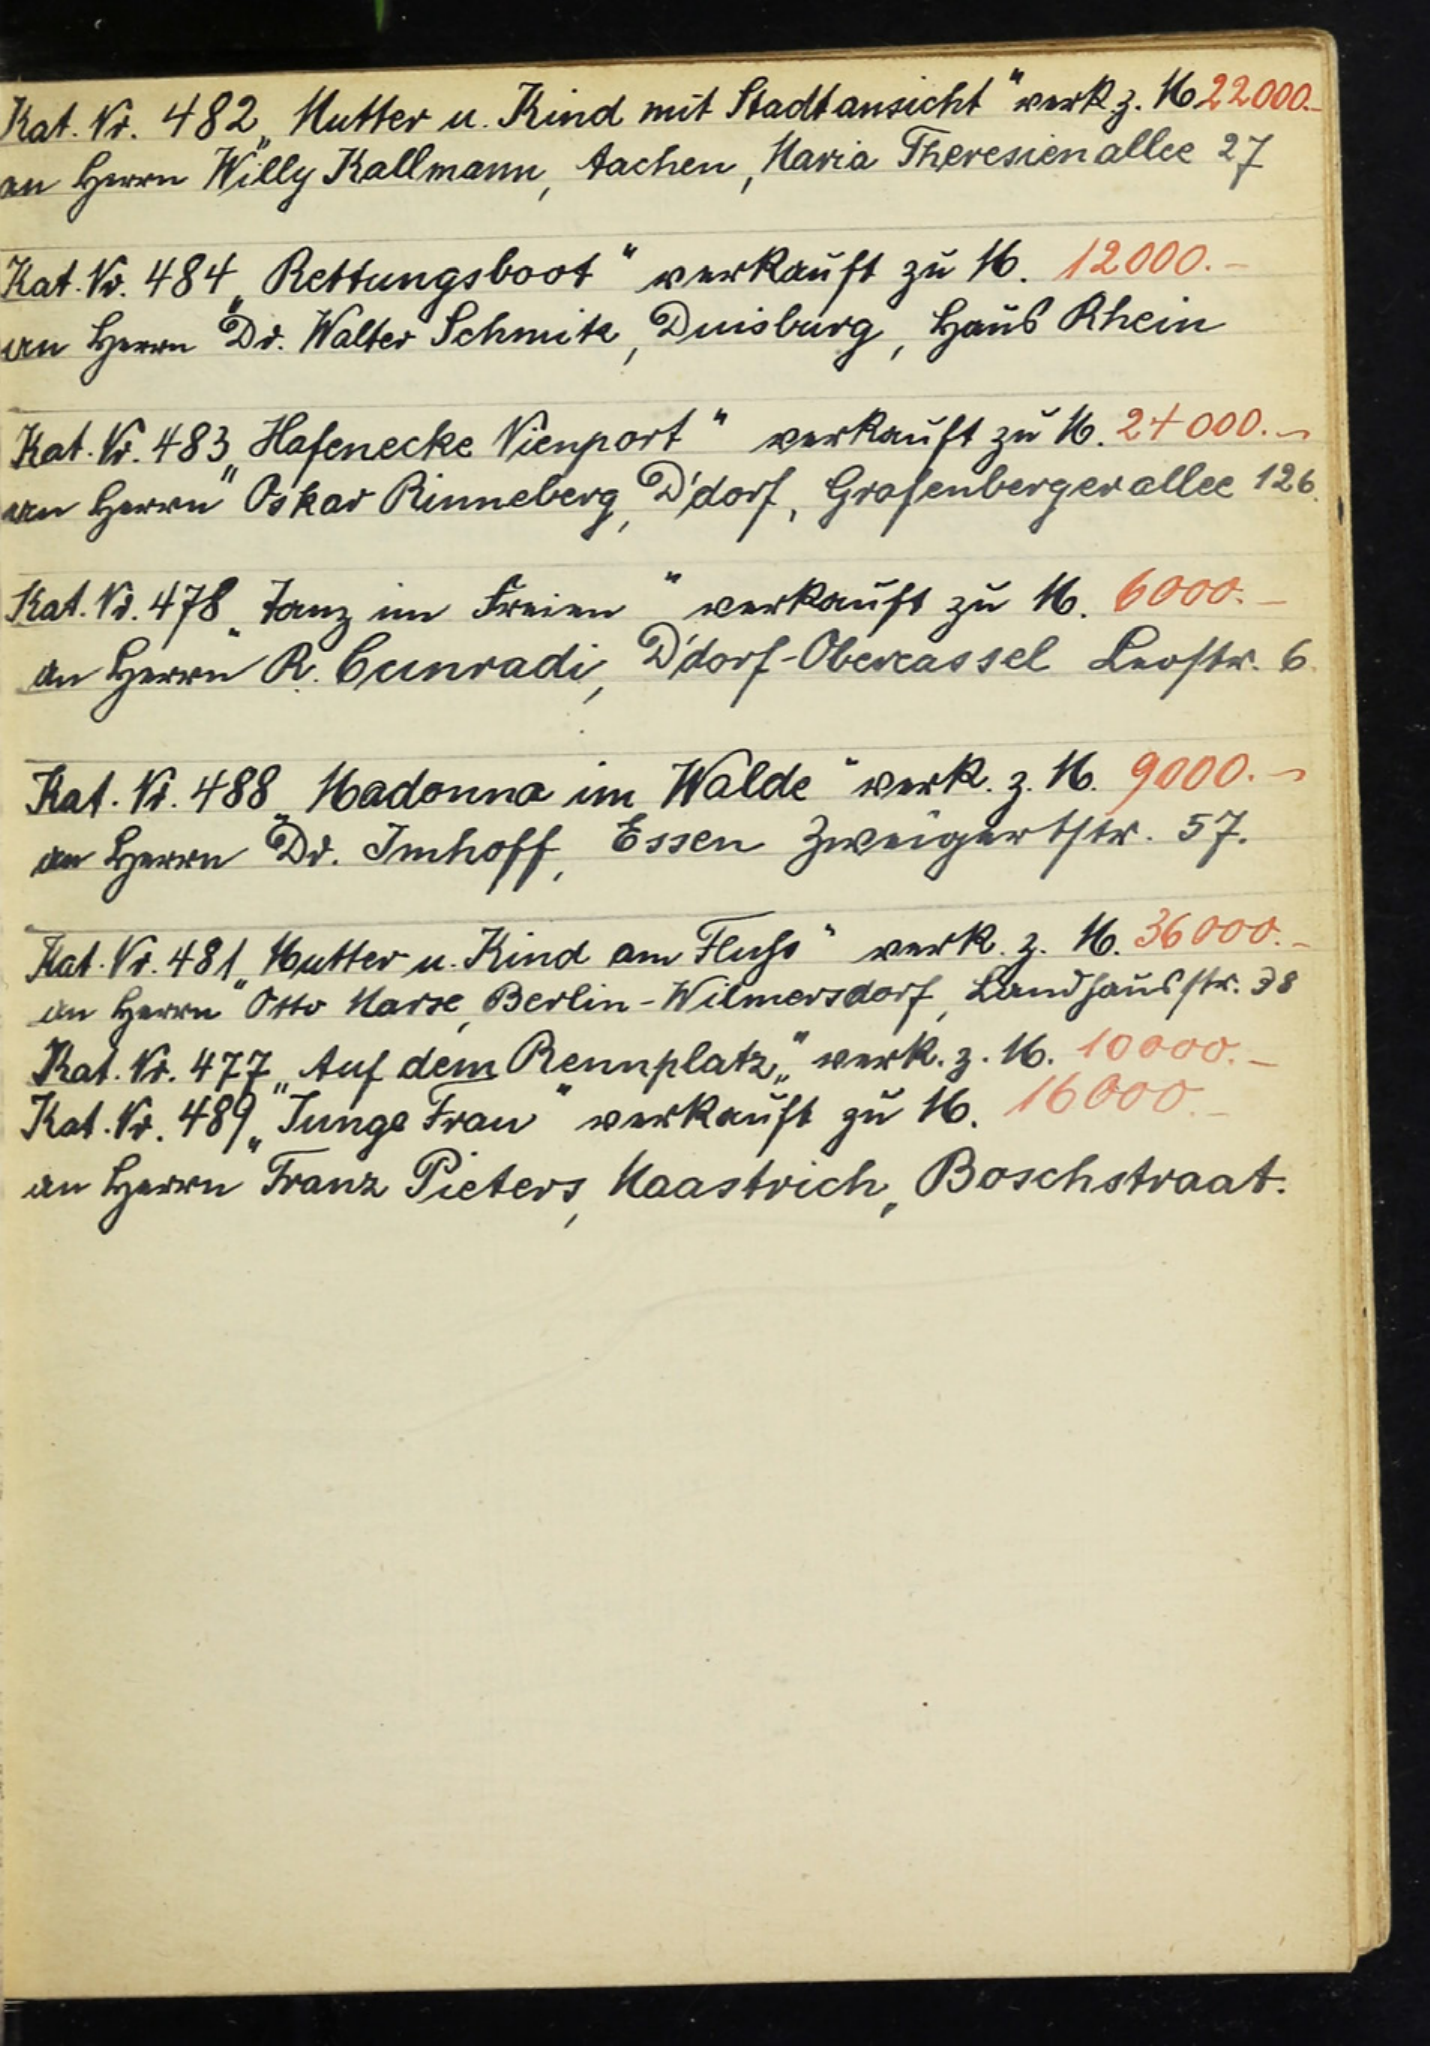 Kat. Nr. 482 „Mutter u. Kind mit Stadtansicht" verk. z. M 22000.-
an Herrn Willy Kallmann, Aachen, Maria Theresienallee 27
Kat. Nr. 484 „Rettungsboot" verkauft zu M. 12000.-
an Herrn Dr. Walter Schmitz, Duisburg, Haus Rhein
Kat. Nr. 483 „Hafenecke Nienport" verkauft zu M. 24000.-
an Herrn Oskar Rinneberg, D'dorf, Grafenbergerallee 126.
Kat. Nr. 478 „Tanz im Freien" verkauft zu M. 6000.-
an Herrn R. Cunradi, D'dorf-Obercassel Leostr. 6.
Kat. Nr. 488 „Madonna im Walde" verk. z. M. 9000.-
an Herrn Dr. Imhoff, Essen Zweigertstr. 57.
Kat. Nr. 481 „Mutter u. Kind am Fluss" verk. z. M. 36000.-
an Herrn Otto Marse, Berlin-Wilmersdorf, Landhausstr. 38
Kat. Nr. 477 „Auf dem Rennplatz„" verk. z. M. 10000.-
Kat. Nr. 489 „Junge Frau" verkauft zu M. 16000.-
an Herrn Franz Pieters, Maastrich, Boschstraat.